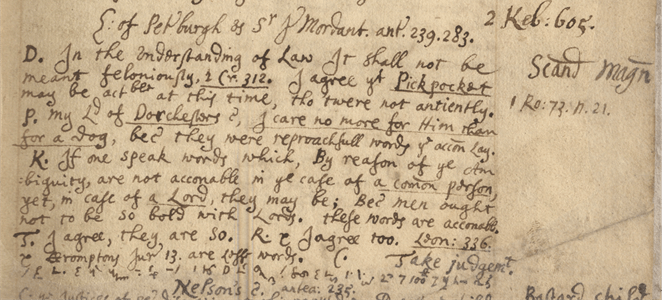 E: of Pet'burgh & Sr J Mordant. ant. 239.283.
2 Keb: 605.
D. In the Understanding of Law It shall not be
meant feloniously, 2 Cr. 312. I agree yt Pickpocket
may be act ble at this time, tho twere not antiently.
Scand Magn
1 Ro: 73. n. 21.
P. My Ld of Dorchesters c, I care no more for Him than
for a Dog, bec they were reproachfull words ye accon Lay.
K. If one speak words which, By reason of ye Am
:biguity, are not acconable in ye case of a comon person,
yet, in case of a Lord, they may be; Bec men ought
not to be so bold with Lords. these words are acconab.
T. I agree, they are so. R. I agree too. Leon: 336.
Cromptons Jur 13. are words. C. Take judgemt.
Nelson's c. antea: 235.
Bastard child